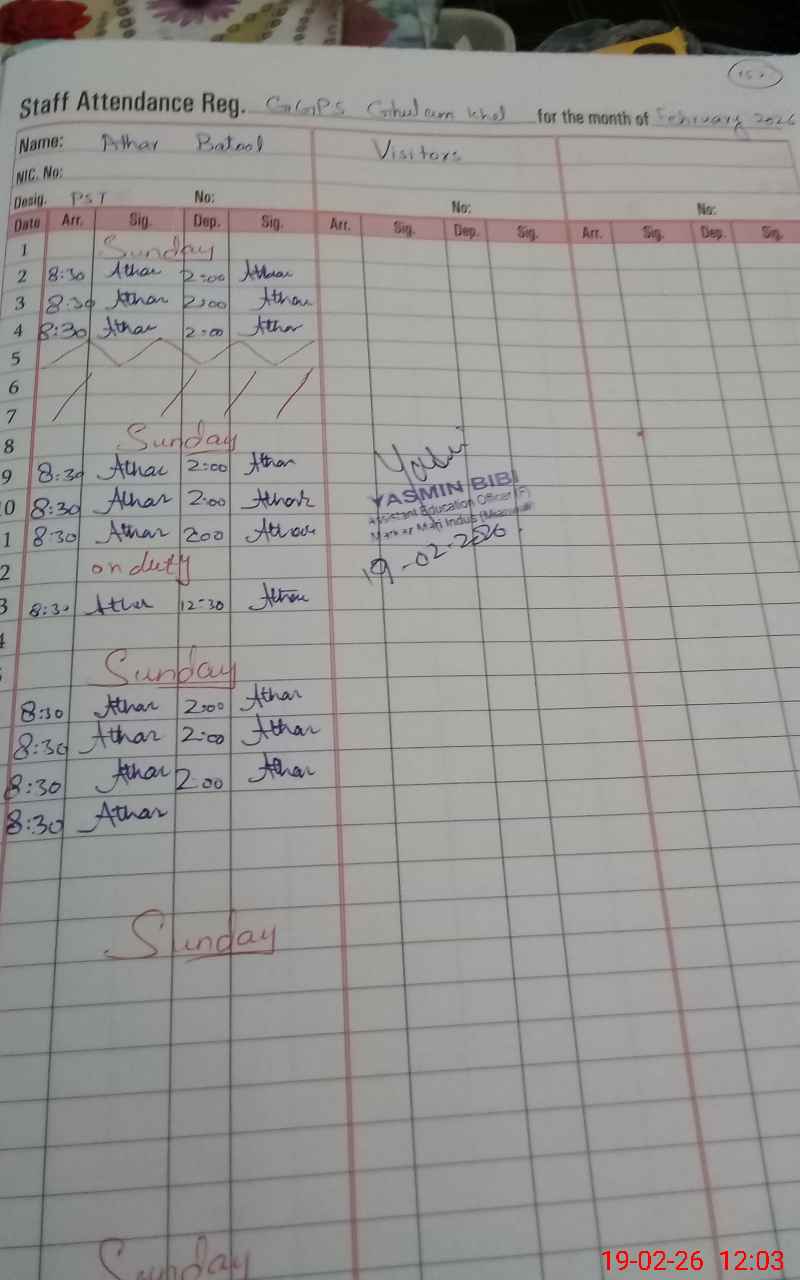 157
Staff Attendance Reg. GGPS Ghulam khel for the month of February 2026
Name: Athar Batool Visitors
NIC. No:
Desig. PST No: No: No:
Date Arr. Sig. Dep. Sig. Arr. Sig. Dep. Sig. Arr. Sig. Dep. Sig.
1 Sunday
2 8:30 Athar 2:00 Athar
3 8:30 Athar 2:00 Athar
4 8:30 Athar 2:00 Athar
5
6
7
8 Sunday
9 8:30 Athar 2:00 Athar
0 8:30 Athar 2:00 Athar
1 8:30 Athar 2:00 Athar
2 on duty
3 8:30 Athar 12:30 Athar
4
Sunday
8:30 Athar 2:00 Athar
8:30 Athar 2:00 Athar
8:30 Athar 2:00 Athar
8:30 Athar
Sunday
Sunday
YASMIN BIBI
Assistant Education Officer (F)
Indus
19-02-2026
19-02-26 12:03